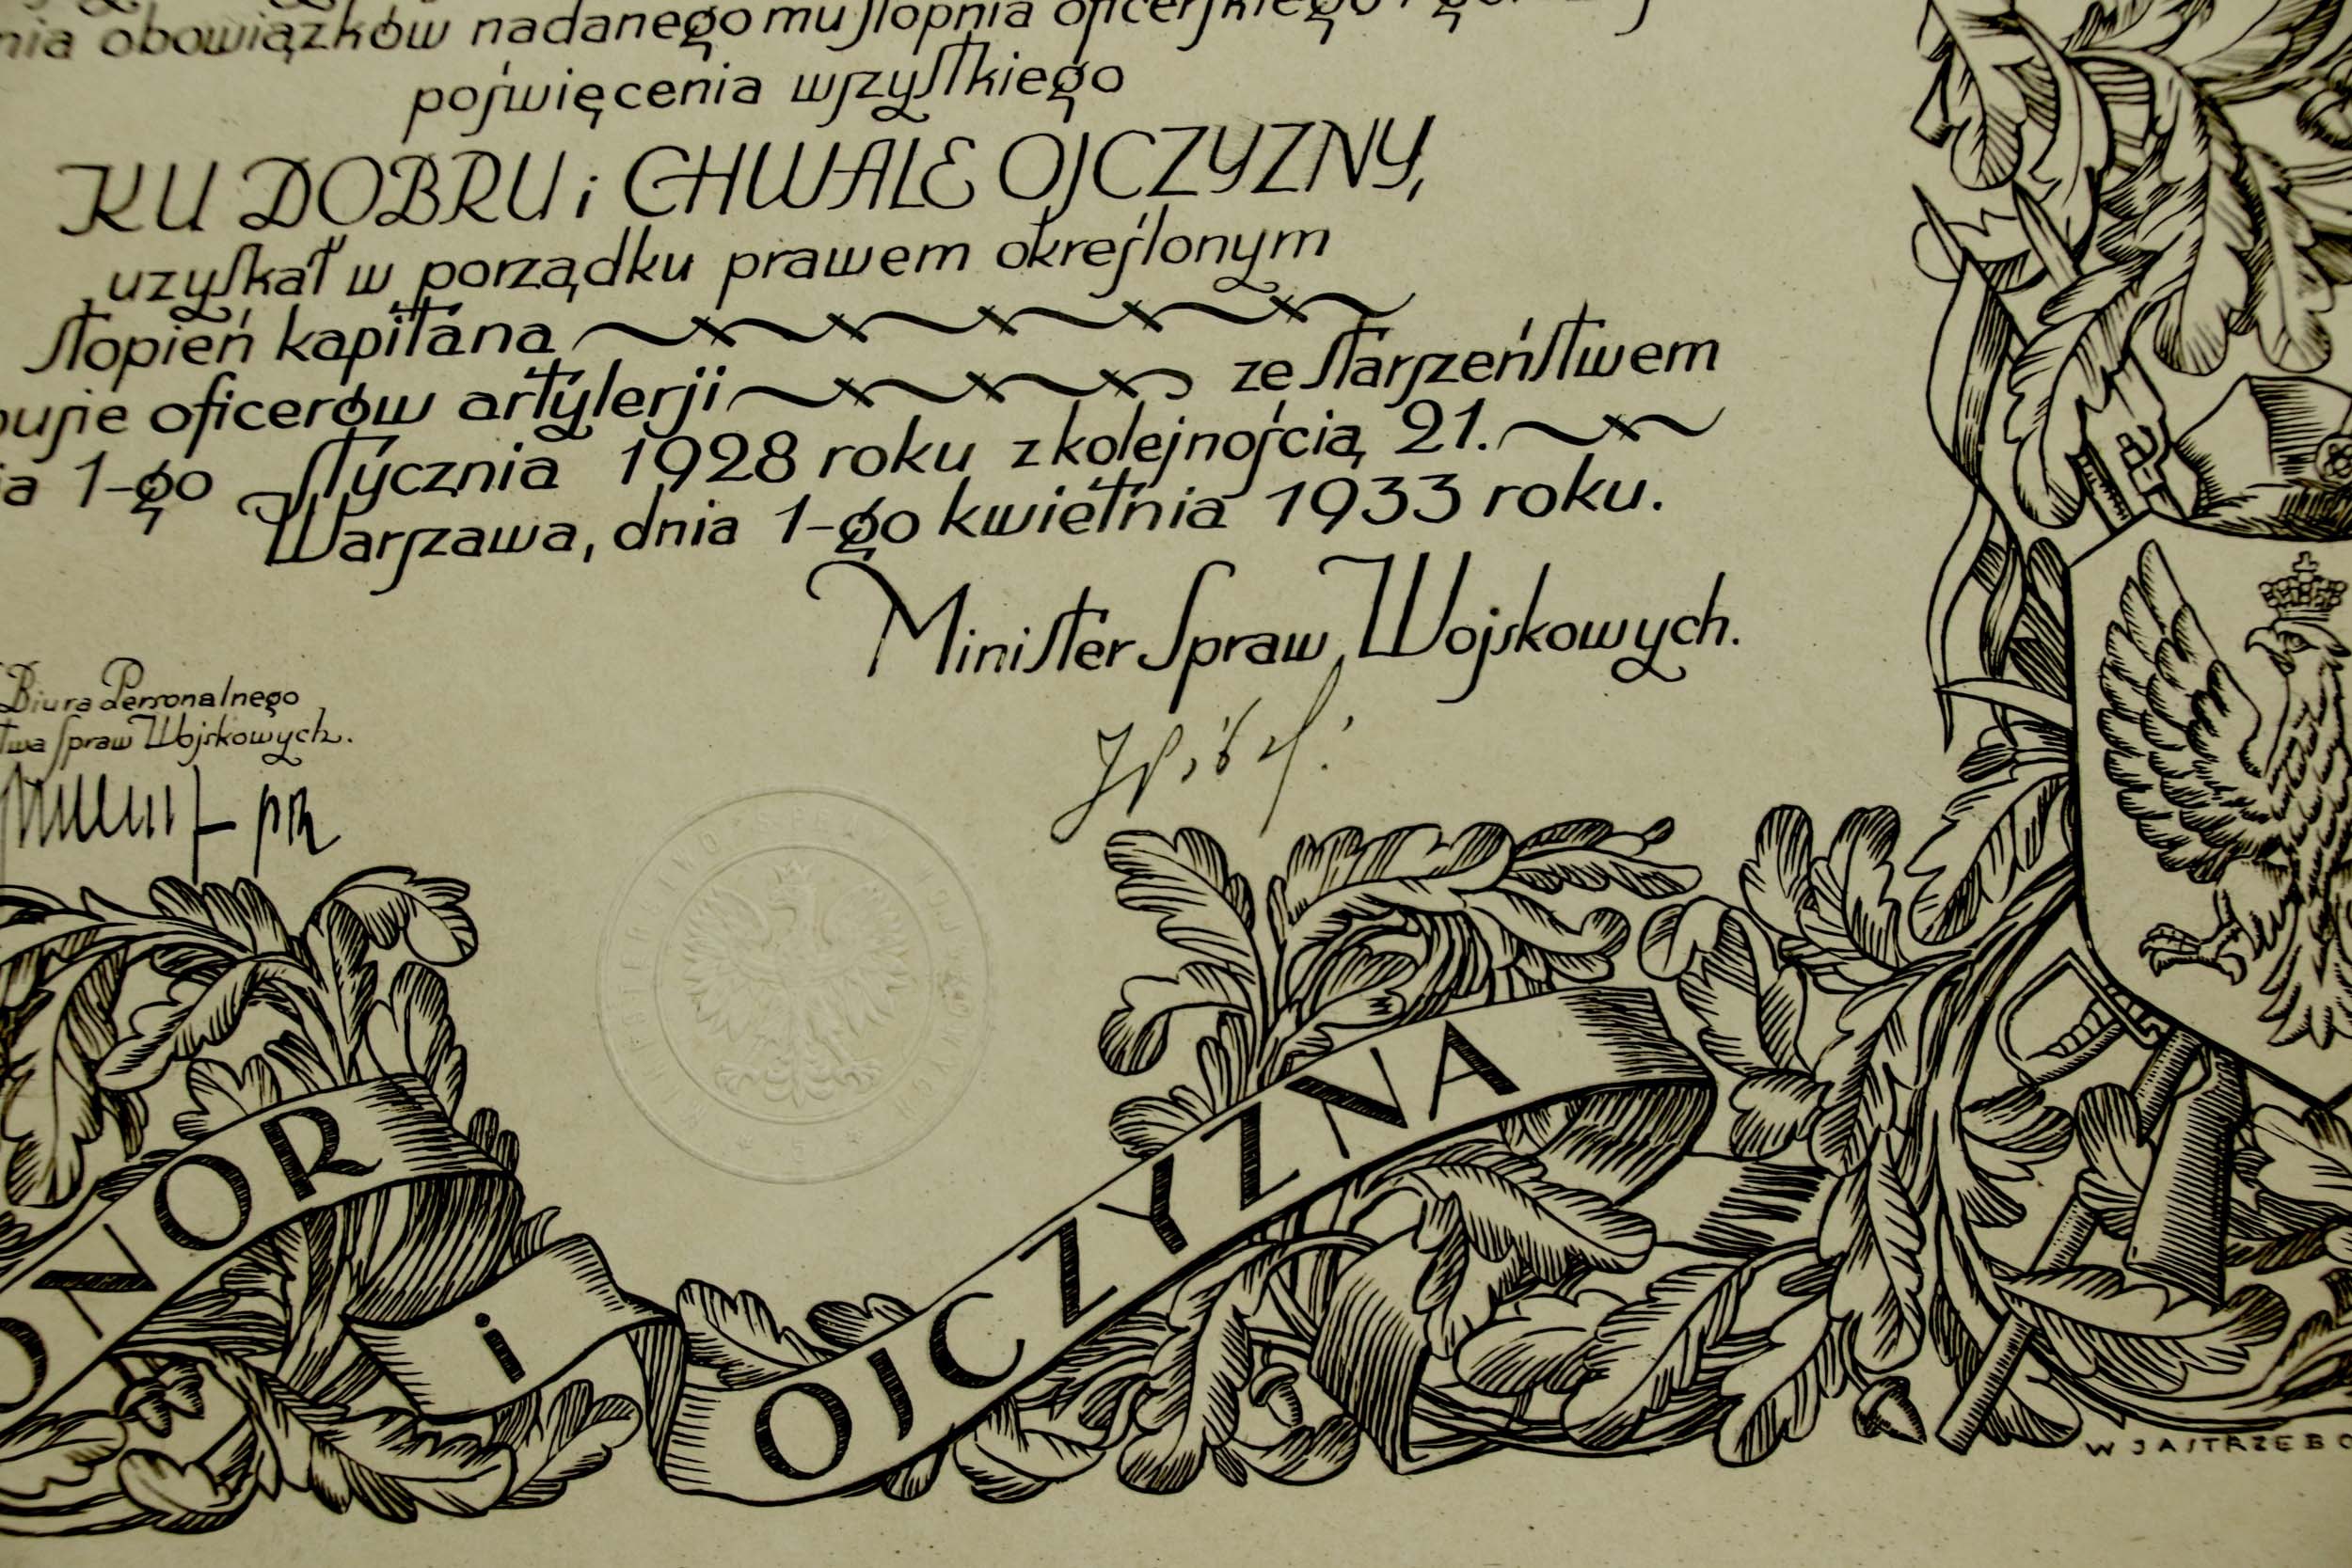 obowiązków nadanego mu stopnia oficerskiego i
poświęcenia wszystkiego
KU DOBRU i CHWALE OJCZYZNY,
uzyskał w porządku prawem określonym
stopień kapitana
pusie oficerów artylerji ze starszeństwem
1-go stycznia 1928 roku z kolejnością 21.
Warszawa, dnia 1-go kwietnia 1933 roku.
Minister Spraw Wojskowych.
Biura Personalnego
twa Spraw Wojskowych.
ONOR i OJCZYZNA
W JASTRZEBO